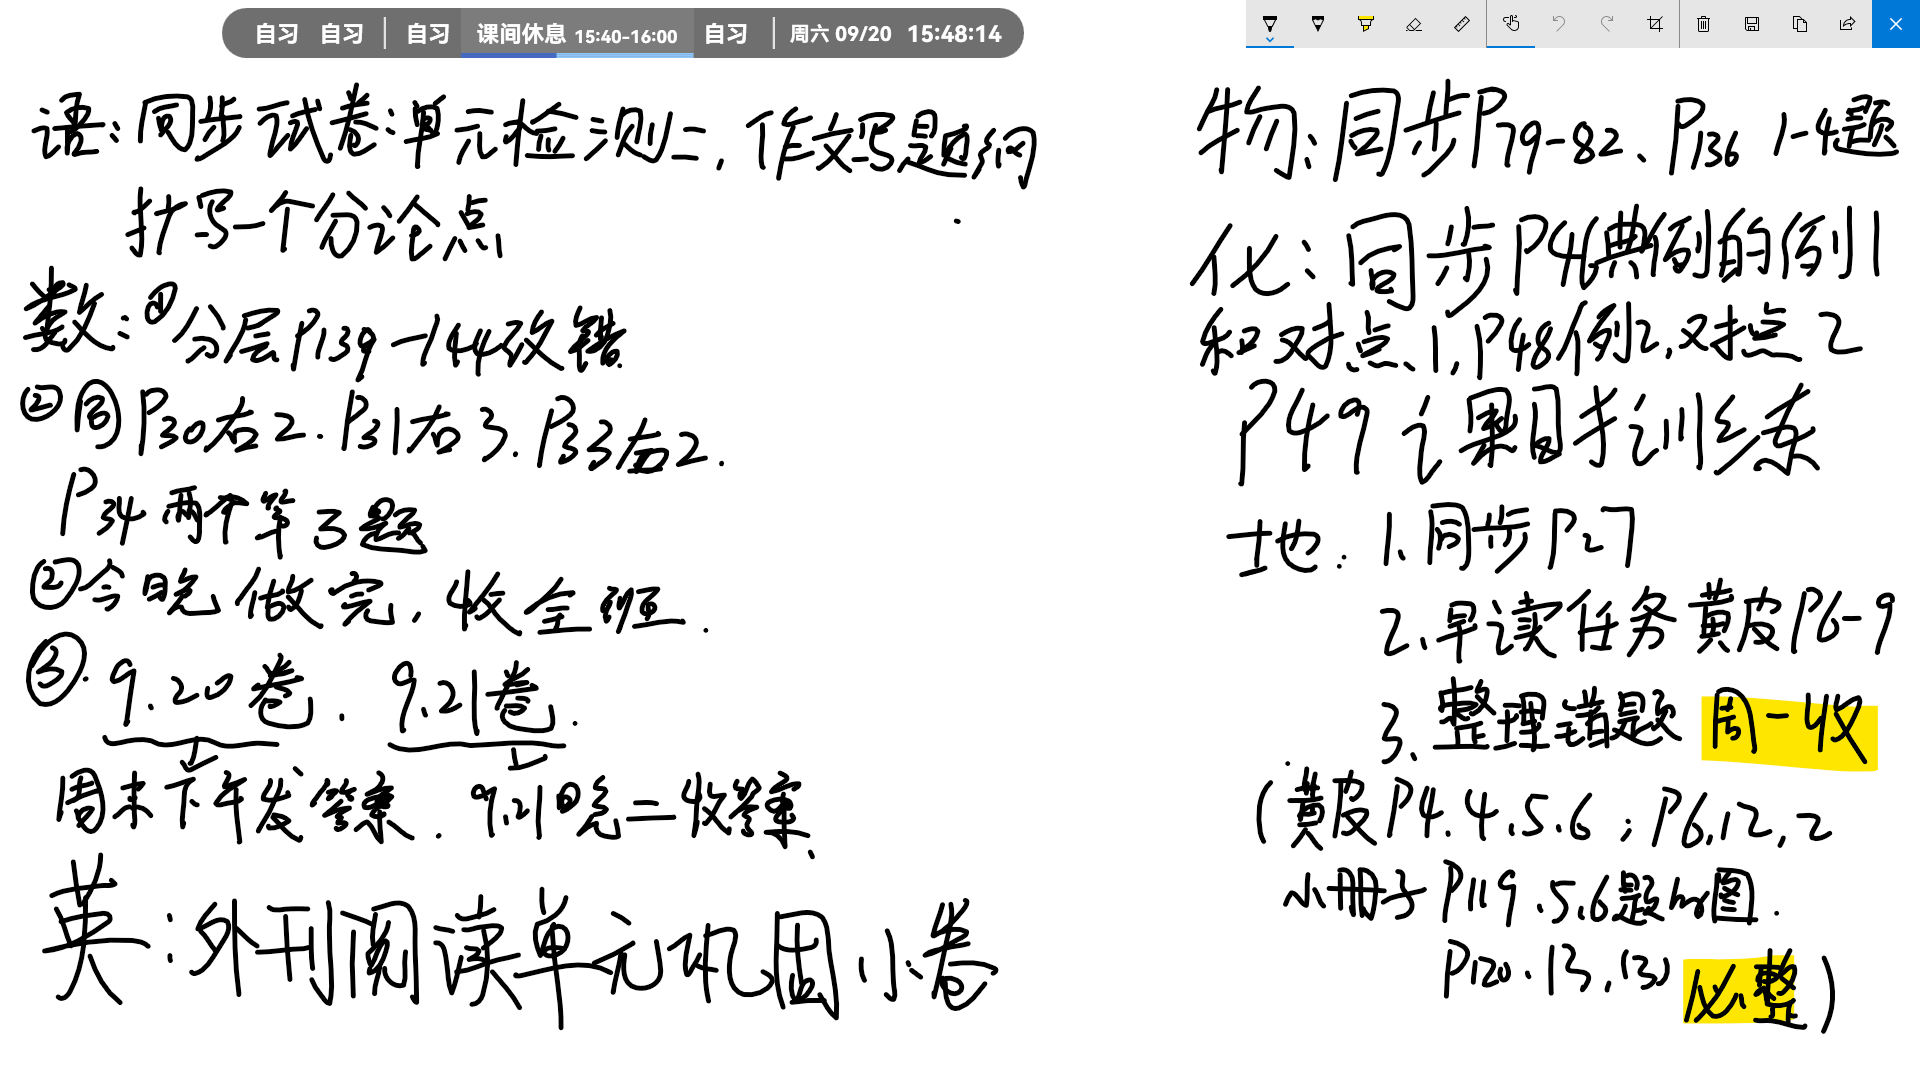 自习 自习 自习 课间休息 15:40-16:00 自习 周六 09/20 15:48:14
语：同步试卷：单元检测二，作文写题纲
抄写一个分论点
数：①分层P139-144改错
②同P30右2．P31右3．P33右2．
P34两个第3题
②今晚做完，收全班．
③．9.20卷．9.21卷．
周末下午发答案．9.21日晚二收答案
英：外刊阅读单元巩固小卷
物：同步P79-82、P136 1-4题
化：同步P46典例的例1
和对点、1，P48例2，对点2
P49课目标训练
地：1、同步P27
2、早读任务黄皮P6-9
3、整理错题 周一收
（黄皮P4.4.5.6；P6,12,2
小册子P119.5.6题的图．
P120.13,(3) 必整）